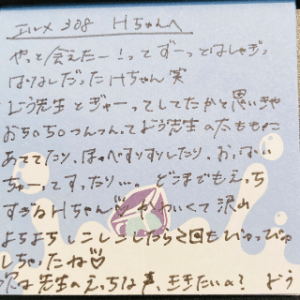 エルメ 308 Hちゃんへ
やっと会えたー!ってずーっとはしゃぎっ
ぱなしだったHちゃん笑
どう先生とぎゃーってしてたかと思いきや
おち〇ち〇つんつんってどう先生の太ももに
あててたり、ほっぺすりすりしたり、おっぱい
ちゅーってすったり...。どこまでもえっち
すぎるHちゃん♡かわいくて沢山
よちよちしこしこしたら2回もぴゅっぴゅ
しちゃったね♡
次は先生のえっちな声、ききたいの? どう